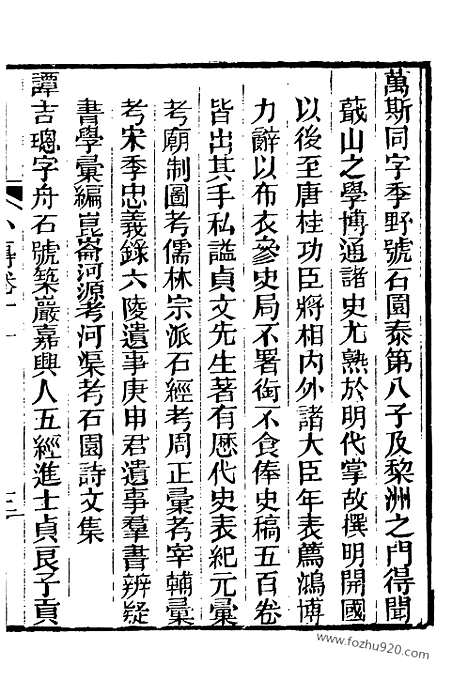 萬斯同字季野號石園泰第八子及黎洲之門得聞
蕺山之學博通諸史尤熟於明代掌故撰明開國
以後至唐桂功臣將相內外諸大臣年表薦鴻博
力辭以布衣參史局不署銜不食俸史稿五百卷
皆出其手私謚貞文先生著有歷代史表紀元彙
考廟制圖考儒林宗派石經考周正彙考宰輔彙
考宋季忠義錄六陵遺事庚申君遺事羣書辨疑
書學彙編崑崙河源考河渠考石園詩文集
譚吉璁字舟石號築巖嘉興人五經進士貞良子貢
www.fozhu920.com